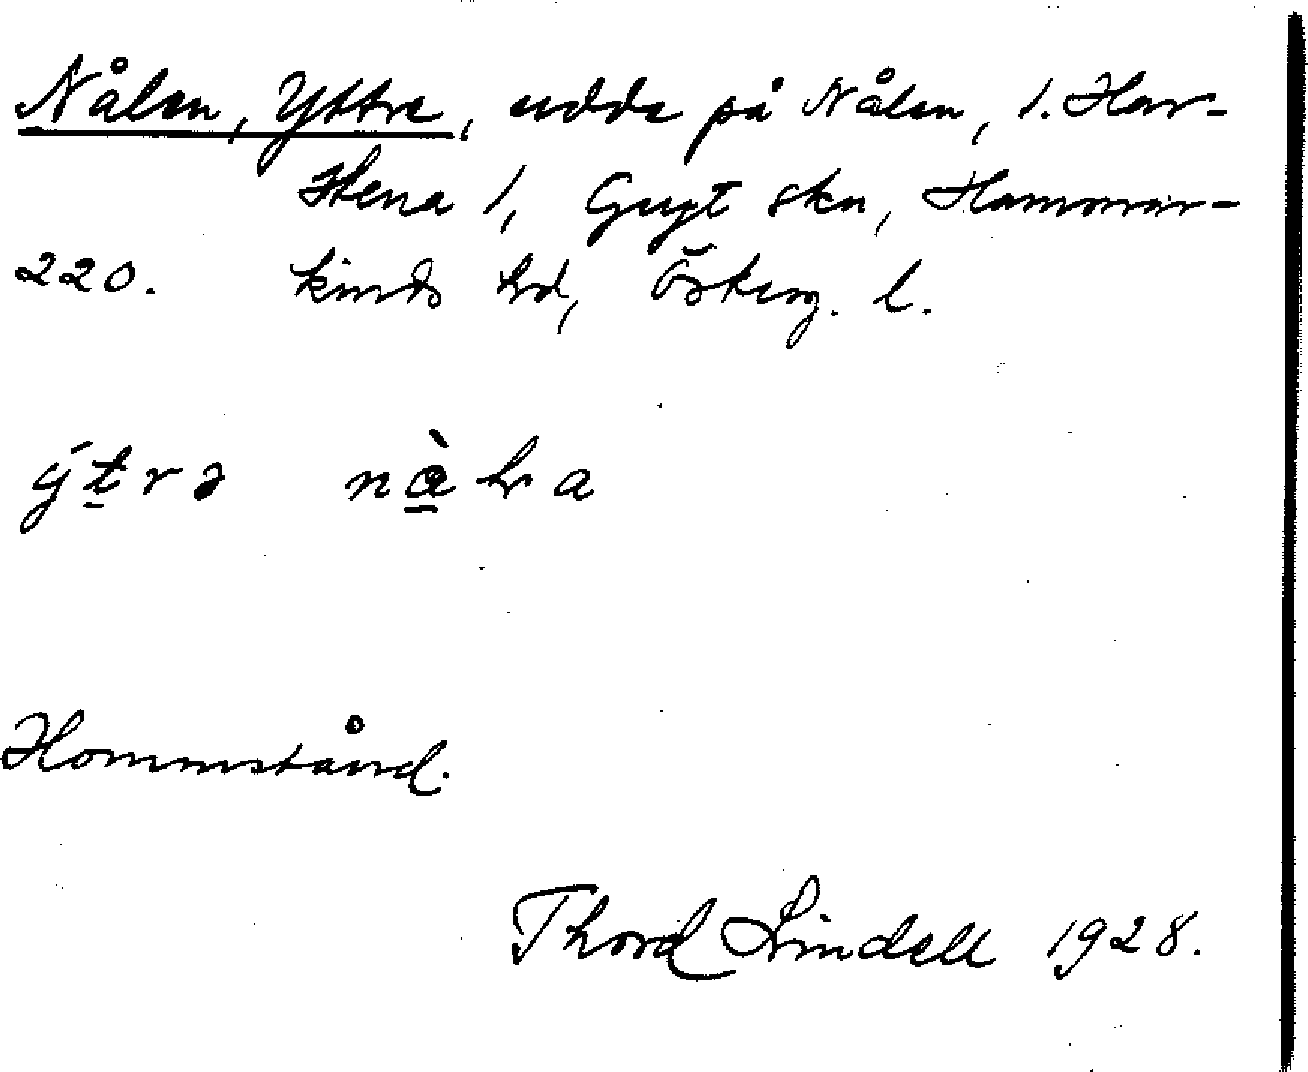 Nålen, Yttre, udde på Nålen, 1. Har-
stena 1, Gryt skn, Hammar-
220. kinds hd, Österg. l.
ýtrə nàla
Hommstånd.
Thord Lindell 1928.